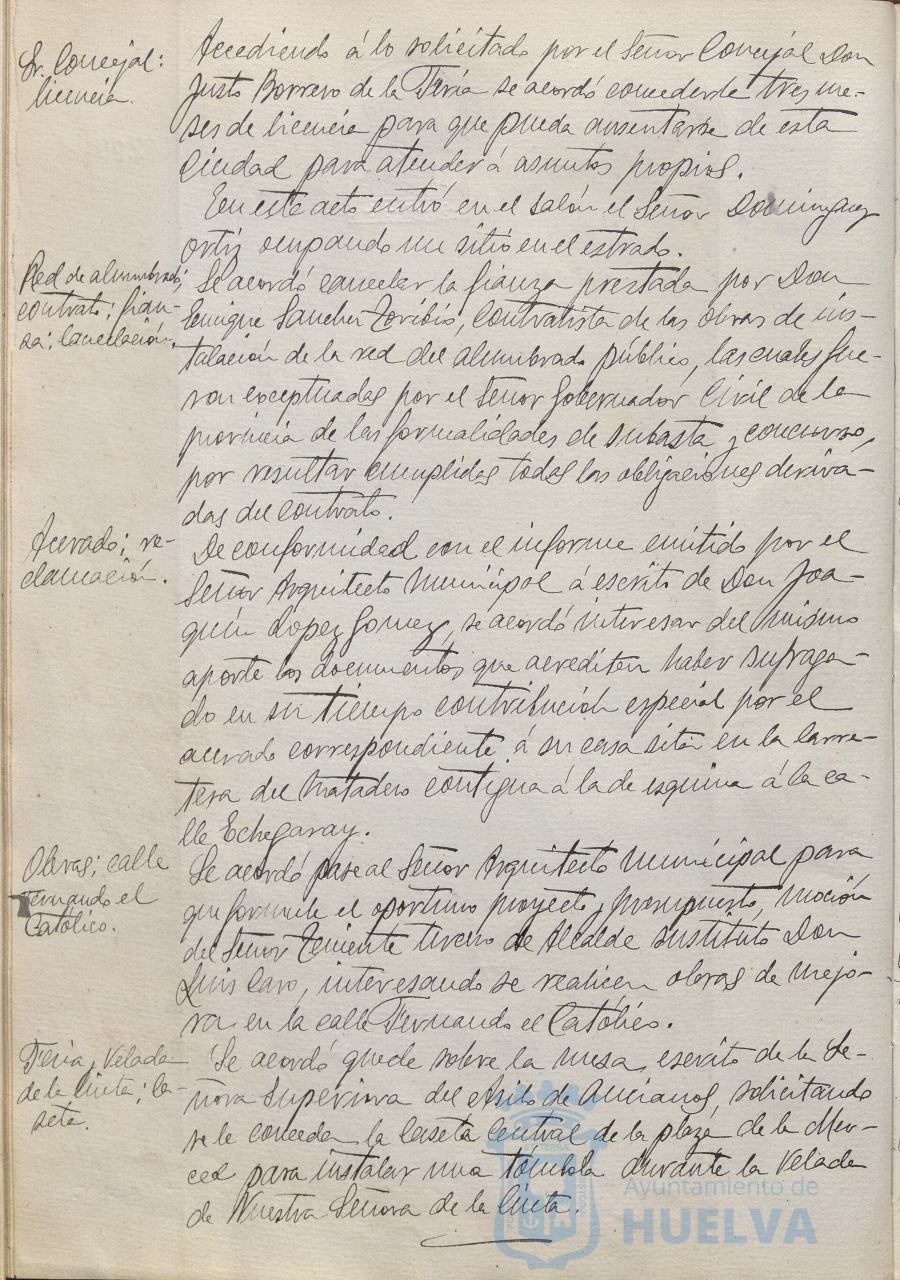 Sr. Concejal:
licencia.
Accediendo á lo solicitado por el Señor Concejal Don
Justo Borrero de la Feria se acordó concederle tres me-
ses de licencia para que pueda ausentarse de esta
Ciudad para atender á asuntos propios.
En este acto entró en el salón el Señor Dominguez
Ortiz ocupando un sitio en el estrado.
Red de alumbrado;
contrato; fian-
za; cancelación.
Se acordó cancelar la fianza prestada por Don
Enrique Sanchez Toribio, contratista de las obras de ins-
talación de la red del alumbrado público, las cuales fue-
ron exceptuadas por el Señor Gobernador Civil de la
provincia de las formalidades de subasta y concurso,
por resultar cumplidas todas las obligaciones deriva-
das del contrato.
Acerado; re-
clamación.
De conformidad con el informe emitido por el
Señor Arquitecto Municipal á escrito de Don Joa-
quín Lopez Gomez, se acordó interesar del mismo
aporte los documentos que acrediten haber sufraga-
do en su tiempo contribución especial por el
acerado correspondiente á su casa sita en la Carre-
tera del Matadero contigua á la de esquina á la ca-
lle Echegaray.
Obras; calle
Fernando el
Católico.
Se acordó pase al Señor Arquitecto Municipal para
que formule el oportuno proyecto y presupuesto, moción
del Señor Teniente tercero de Alcalde sustituto Don
Luis Caro, interesando se realicen obras de mejo-
ra en la calle Fernando el Católico.
Feria y Velada
de la Cinta; ca-
seta.
Se acordó quede sobre la mesa, escrito de la Se-
ñora Superiora del Asilo de Ancianos, solicitando
se le conceda la Caseta Central de la plaza de la Mer-
ced para instalar una tómbola durante la Velada
de Nuestra Señora de la Cinta.
Ayuntamiento de
HUELVA